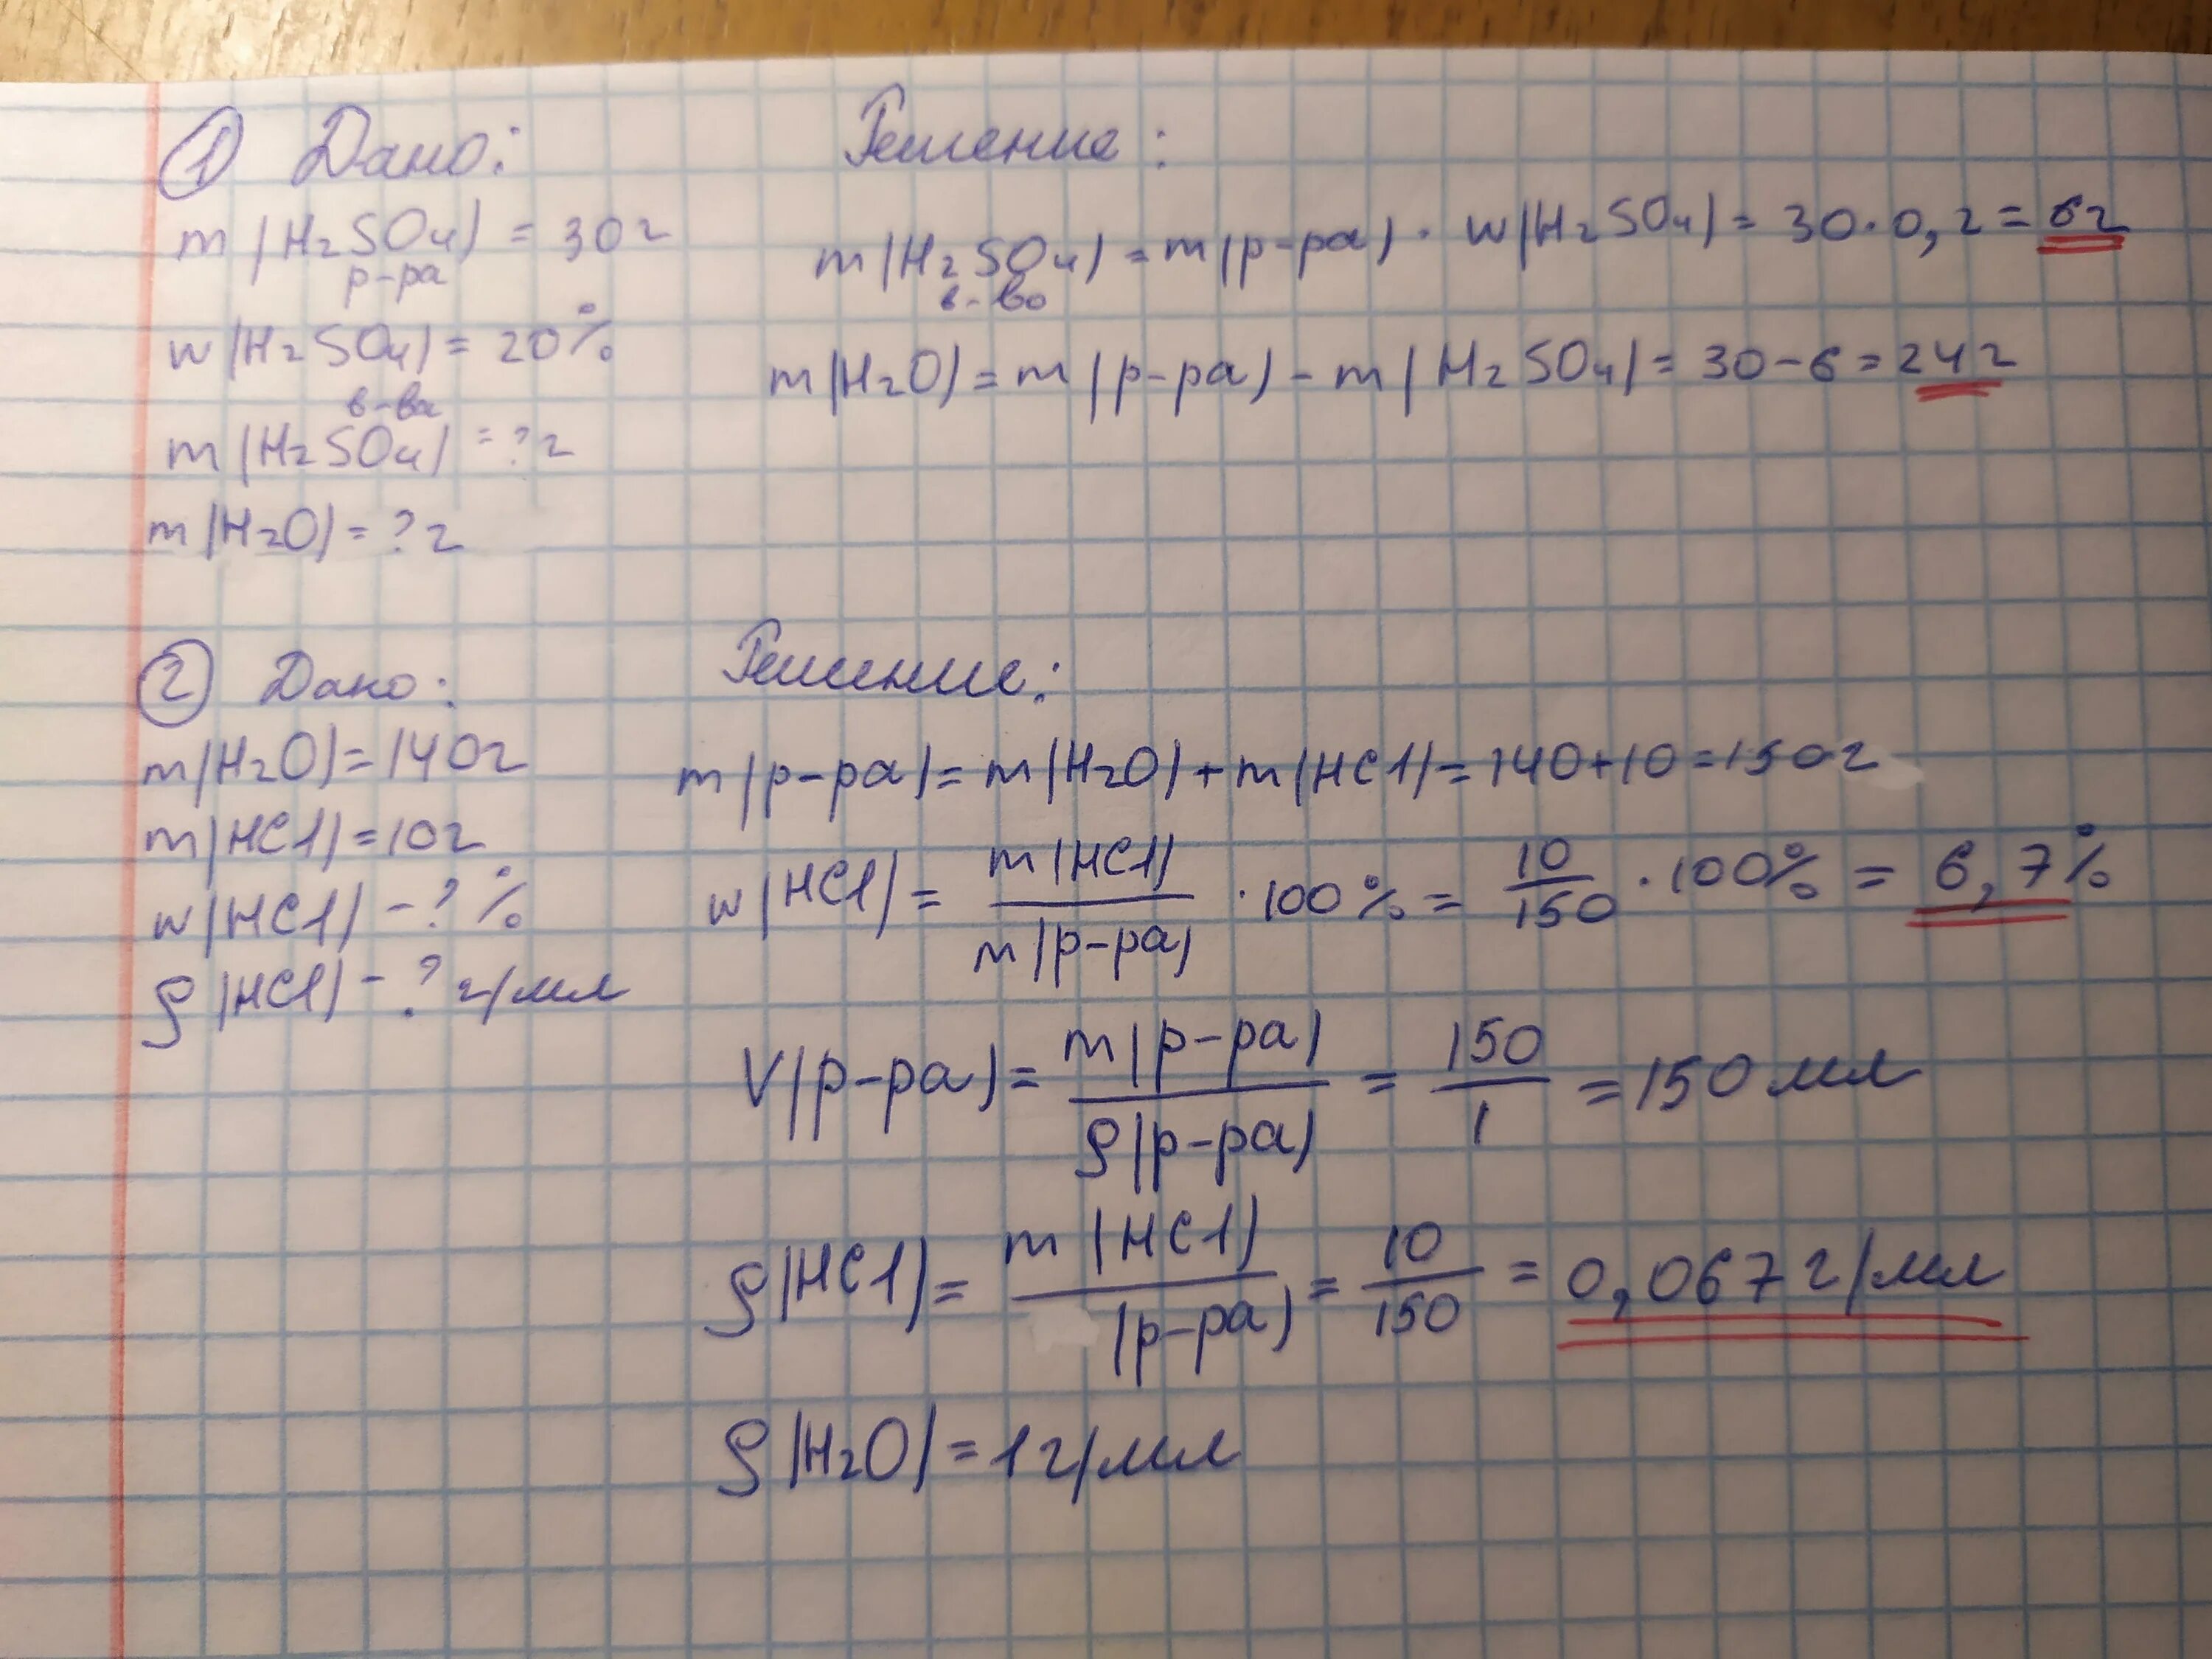 ① Дано:
m(H₂SO₄) = 30г
р-ра
w(H₂SO₄) = 20%
в-ва
m(H₂SO₄) = ? г
m(H₂O) = ? г
Решение:
m(H₂SO₄) = m(р-ра) · w(H₂SO₄) = 30·0,2 = 6г
в-во
m(H₂O) = m(р-ра) - m(H₂SO₄) = 30-6 = 24г
② Дано:
m(H₂O) = 140г
m(HCl) = 10г
w(HCl) - ? %
ρ(HCl) - ? г/мл
Решение:
m(р-ра) = m(H₂O) + m(HCl) = 140+10 = 150г
w(HCl) = m(HCl) / m(р-ра) · 100% = 10/150 · 100% = 6,7%
V(р-ра) = m(р-ра) / ρ(р-ра) = 150/1 = 150 мл
ρ(HCl) = m(HCl) / (р-ра) = 10/150 = 0,067 г/мл
ρ(H₂O) = 1г/мл